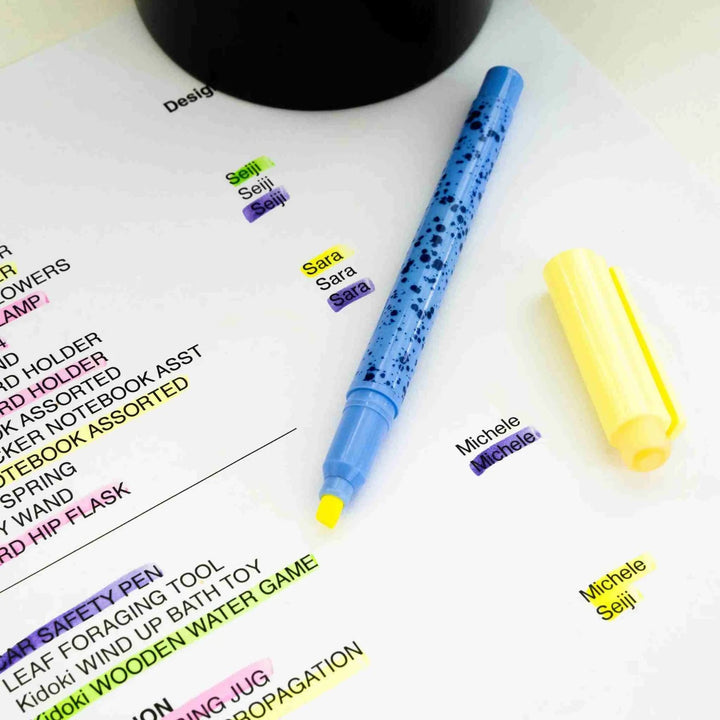 Desig
Seiji
Seiji
Seiji
Sara
Sara
Sara
R
ER
LOWERS
LAMP
ND
RD HOLDER
RD HOLDER
OK ASSORTED
CKER NOTEBOOK ASST
OTEBOOK ASSORTED
SPRING
Y WAND
RD HIP FLASK
Michele
Michele
CAR SAFETY PEN
LEAF FORAGING TOOL
Kidoki WIND UP BATH TOY
Kidoki WOODEN WATER GAME
Michele
Seiji
ION
ING JUG
PROPAGATION